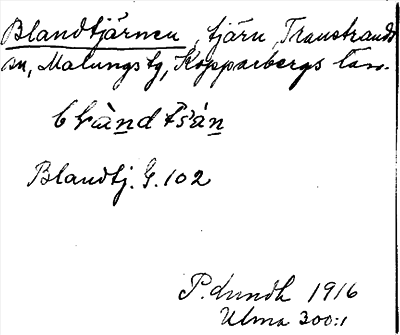 Blandtjärnen, tjärn, Transtrands
sn, Malungs tg, Kopparbergs län.
blànd tsạ́n
Blandtj. G. 102
P. Lundh 1916
Ulma 300:1